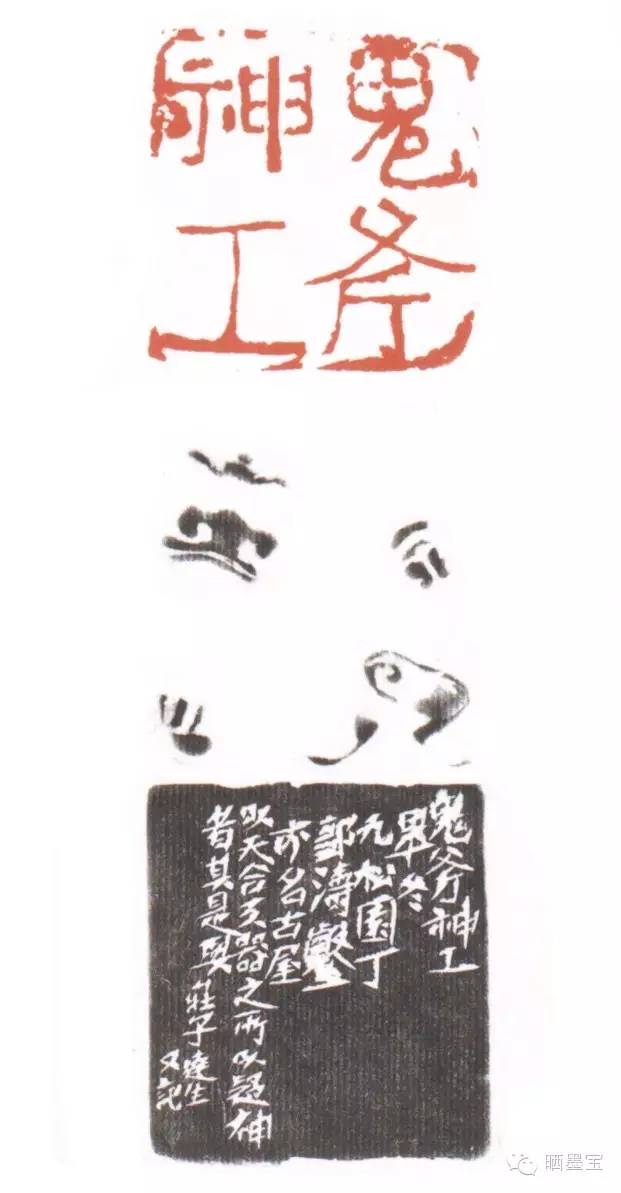 鬼斧
神工
鬼斧神工
冬
九松園丁
郭濤鑿
名古屋
以天合天器之所以疑神
者其是與 莊子達生
又記
晒墨宝